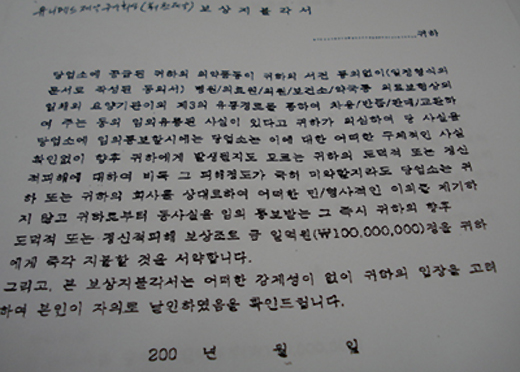 보상지불각서
귀하
당업소에 공급된 귀하의 의약품등이 귀하의 서전 동의없이(일정형식의
문서로 작성된 동의서) 병원/의료원/의원/보건소/약국등 의료보험상의
일체의 요양기관이외 제3의 유통경로를 통하여 차용/반품/판매/교환하
여 주는 등의 임의유통된 사실이 있다고 귀하가 의심하여 당 사실을
당업소에 임의통보할시에는 당업소는 이에 대한 어떠한 구체적인 사실
확인없이 향후 귀하에게 발생된지도 모르는 귀하의 도덕적 또는 정신
적피해에 대하여 비록 그 피해정도가 극히 미약할지라도 당업소는 귀
하 또는 귀하의 회사를 상대로하여 어떠한 민/형사적인 이의를 제기하
지 않고 귀하로부터 동사실을 임의 통보받는 그 즉시 귀하의 향후
도덕적 또는 정신적피해 보상조로 금 일억원(₩100,000,000)정을 귀하
에게 즉각 지불할 것을 서약합니다.
그리고, 본 보상지불각서는 어떠한 강제성이 없이 귀하의 입장을 고려
하여 본인이 자의로 날인하였음을 확인드립니다.
200 년 월 일